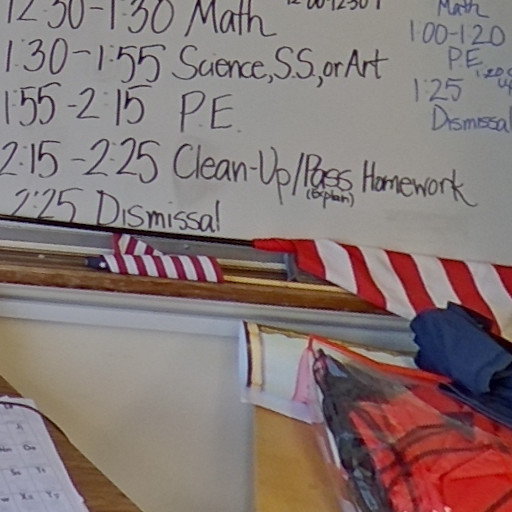 12:30-1:30 Math
1:30-1:55 Science, S.S., or Art
1:55-2:15 P.E.
2:15-2:25 Clean-Up/Pass Homework
(Explain)
2:25 Dismissal
Math
1:00-1:20
P.E.
1:25
Dismissal